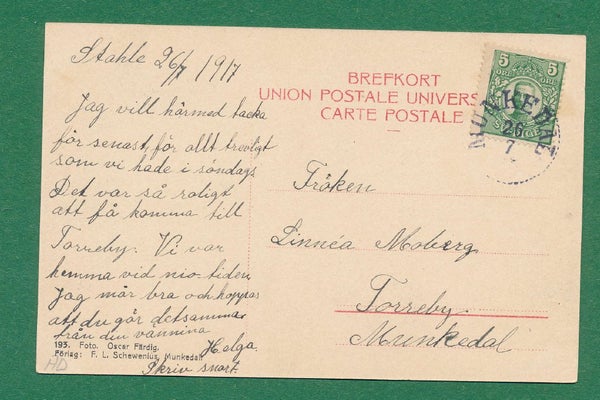 Stahle 26/7 1917
Jag vill härmed tacka
för senast, för allt trevligt
som vi hade i söndags
Det var så roligt
att få komma till
Torreby. Vi var
hemma vid nio-tiden
Jag mår bra och hoppas
att du gör detsamma
från din väninna
Helga.
Skriv snart.
193. Foto. Oscar Färdig.
Förlag: F. L. Schewenius, Munkedal
HD
BREFKORT
UNION POSTALE UNIVERS
CARTE POSTALE
5 5
ÖRE ÖRE
MUNKEDAL
26
7
Fröken
Linnéa Moberg
Torreby
Munkedal